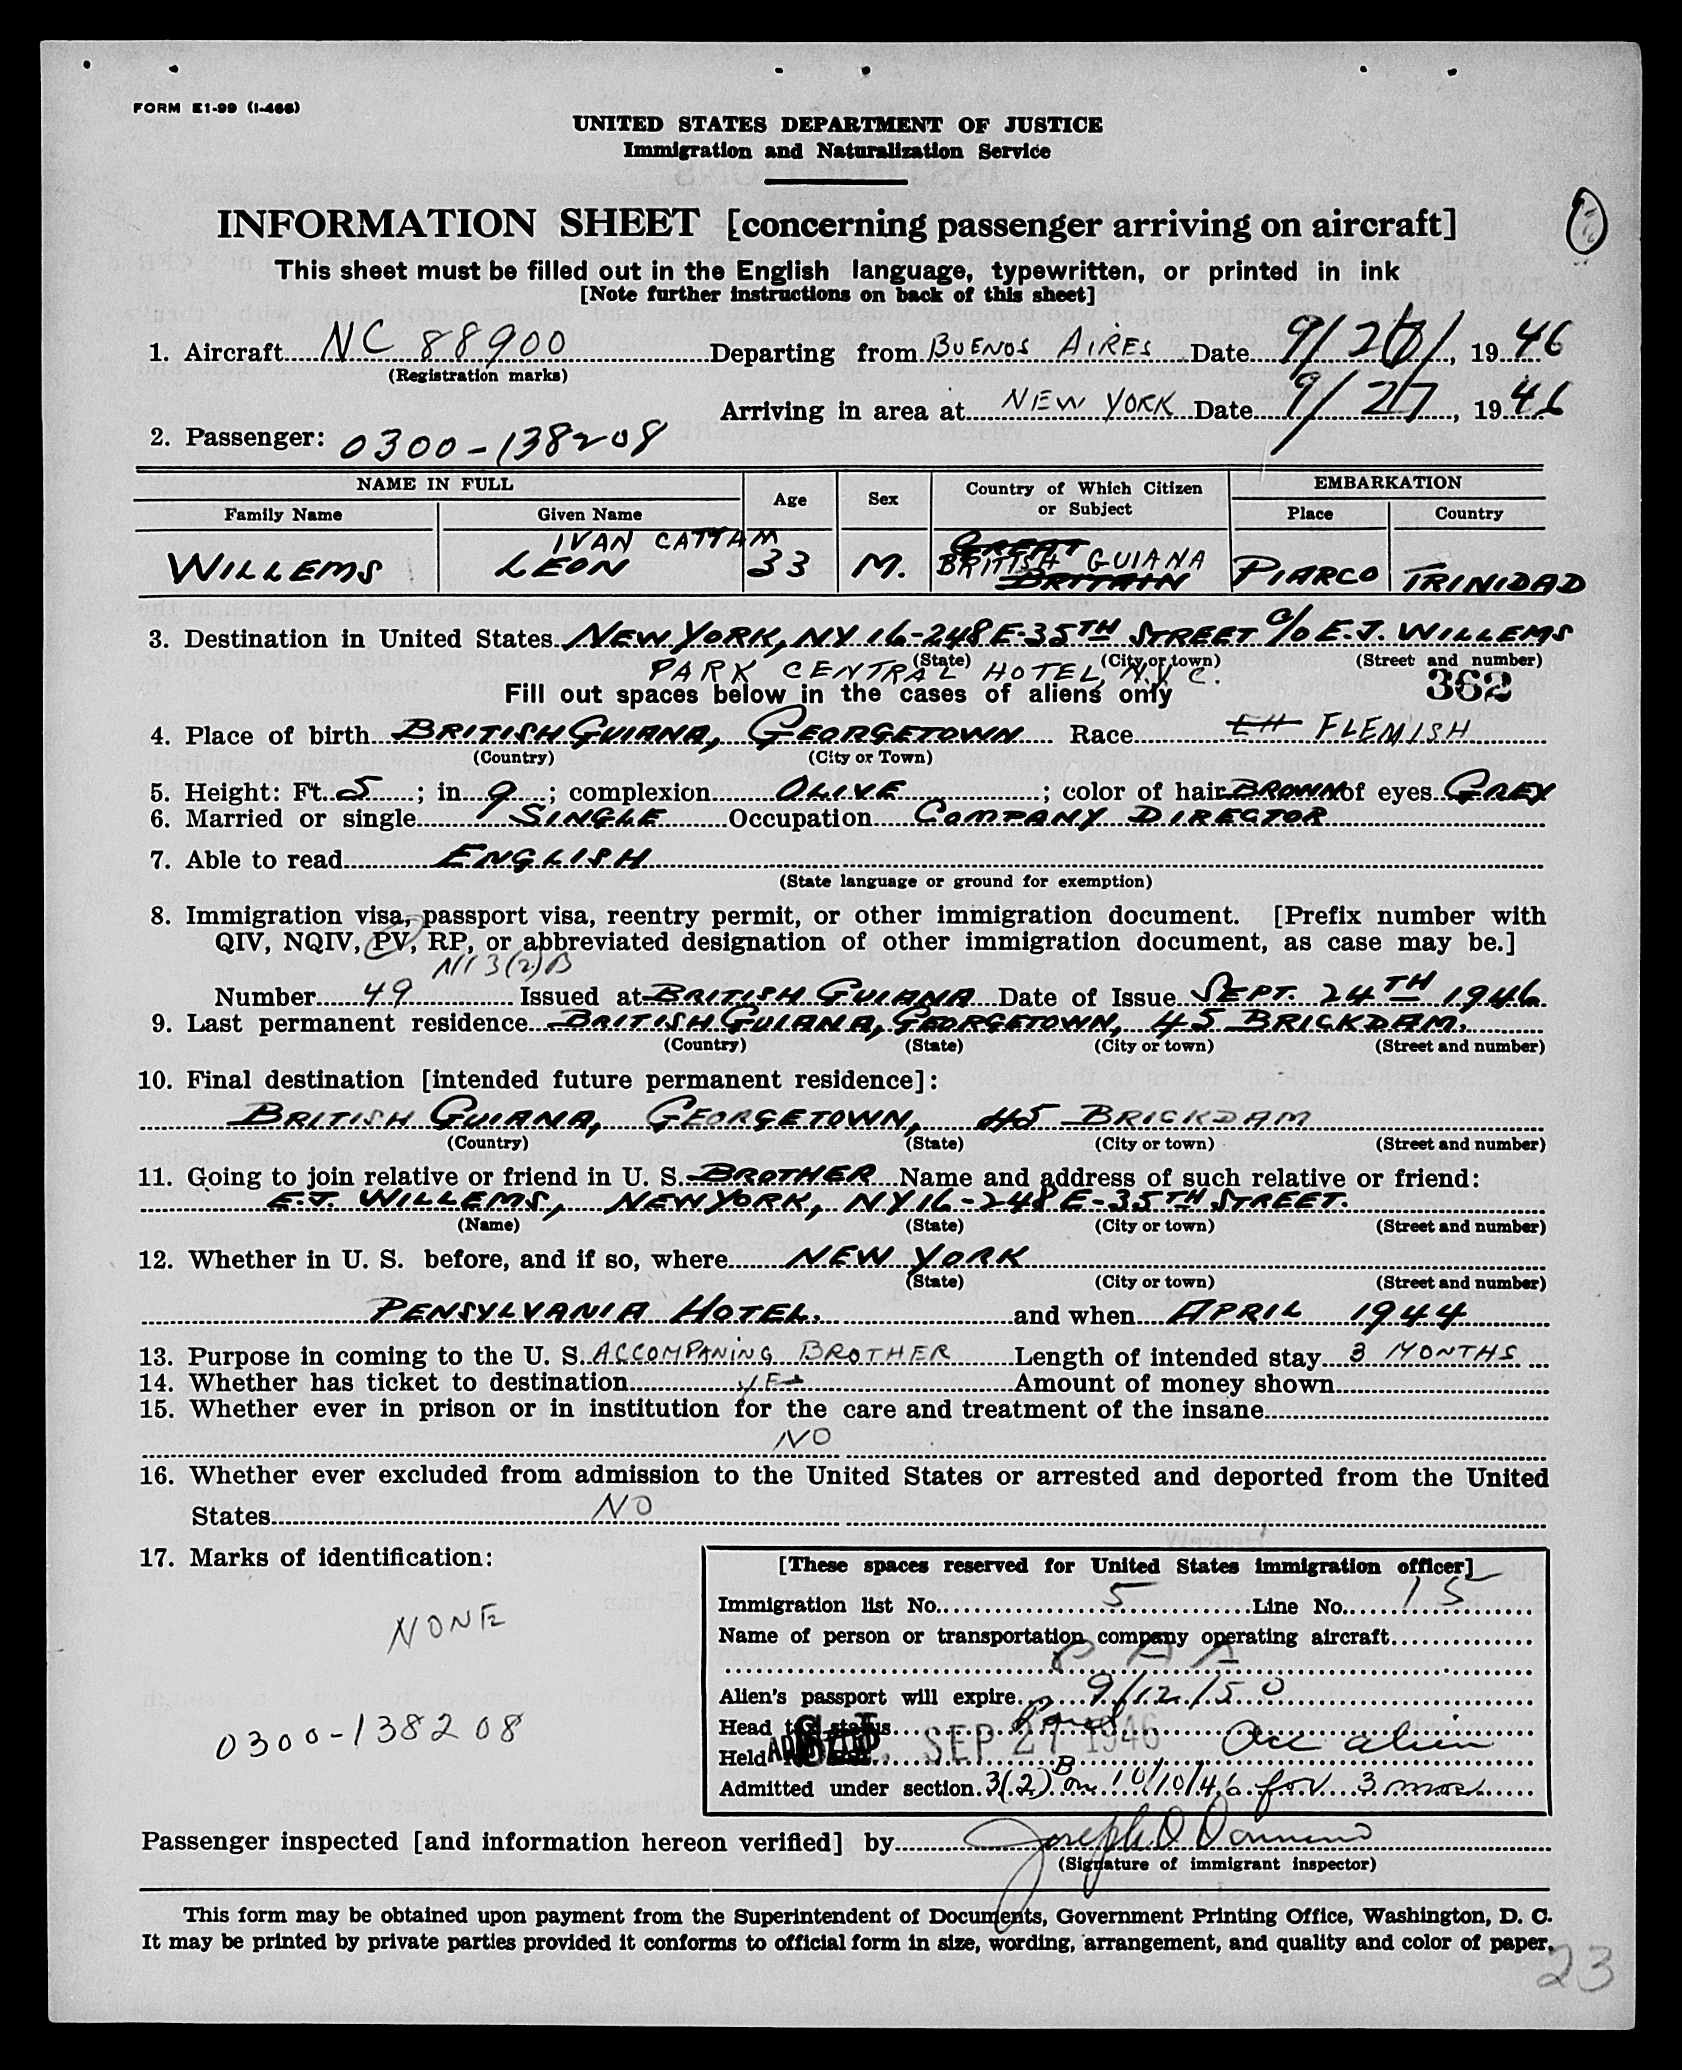 FORM E1-99 (I-466)
UNITED STATES DEPARTMENT OF JUSTICE
Immigration and Naturalization Service
INFORMATION SHEET [concerning passenger arriving on aircraft]
This sheet must be filled out in the English language, typewritten, or printed in ink
[Note further instructions on back of this sheet]
1. Aircraft NC 88900 Departing from BUENOS AIRES Date 9/2 /, 1946
(Registration marks)
Arriving in area at NEW YORK Date 9/27, 1946
2. Passenger: 0300-138208
NAME IN FULL Age Sex Country of Which Citizen or Subject EMBARKATION
Family Name Given Name Place Country
IVAN CATTAM GREAT
WILLEMS LEON 33 M. BRITISH GUIANA PIARCO TRINIDAD
BRITAIN
3. Destination in United States NEW YORK, NY 16-248 E-35TH STREET C/O E.J. WILLEMS
(State) (City or town) (Street and number)
PARK CENTRAL HOTEL, N.Y.C. 362
Fill out spaces below in the cases of aliens only
4. Place of birth BRITISH GUIANA, GEORGETOWN Race FLEMISH
(Country) (City or Town)
5. Height: Ft. 5; in. 9; complexion OLIVE; color of hair BROWN of eyes GREY
6. Married or single SINGLE Occupation COMPANY DIRECTOR
7. Able to read ENGLISH
(State language or ground for exemption)
8. Immigration visa, passport visa, reentry permit, or other immigration document. [Prefix number with
QIV, NQIV, PV, RP, or abbreviated designation of other immigration document, as case may be.]
3(2)B
Number 49 Issued at BRITISH GUIANA Date of Issue SEPT. 24TH 1946.
9. Last permanent residence BRITISH GUIANA, GEORGETOWN, 45 BRICKDAM.
(Country) (State) (City or town) (Street and number)
10. Final destination [intended future permanent residence]:
BRITISH GUIANA, GEORGETOWN, 45 BRICKDAM
(Country) (State) (City or town) (Street and number)
11. Going to join relative or friend in U. S. BROTHER Name and address of such relative or friend:
E.J. WILLEMS, NEW YORK, NY 16-248 E-35TH STREET.
(Name) (State) (City or town) (Street and number)
12. Whether in U. S. before, and if so, where NEW YORK
(State) (City or town) (Street and number)
PENSYLVANIA HOTEL. and when APRIL 1944
13. Purpose in coming to the U. S. ACCOMPANING BROTHER Length of intended stay 3 MONTHS
14. Whether has ticket to destination YES Amount of money shown
15. Whether ever in prison or in institution for the care and treatment of the insane
NO
16. Whether ever excluded from admission to the United States or arrested and deported from the United
States NO
17. Marks of identification:
NONE
0300-138208
[These spaces reserved for United States immigration officer]
Immigration list No. 5 Line No. 15
Name of person or transportation company operating aircraft
P A A
Alien's passport will expire 9/12/50
Head tax status Pond
Held SEP 27 1946 Acc alien
Admitted under section 3(2)B on 10/10/46 for 3 mos
Passenger inspected [and information hereon verified] by Joseph D.
(Signature of immigrant inspector)
This form may be obtained upon payment from the Superintendent of Documents, Government Printing Office, Washington, D. C.
It may be printed by private parties provided it conforms to official form in size, wording, arrangement, and quality and color of paper.
23